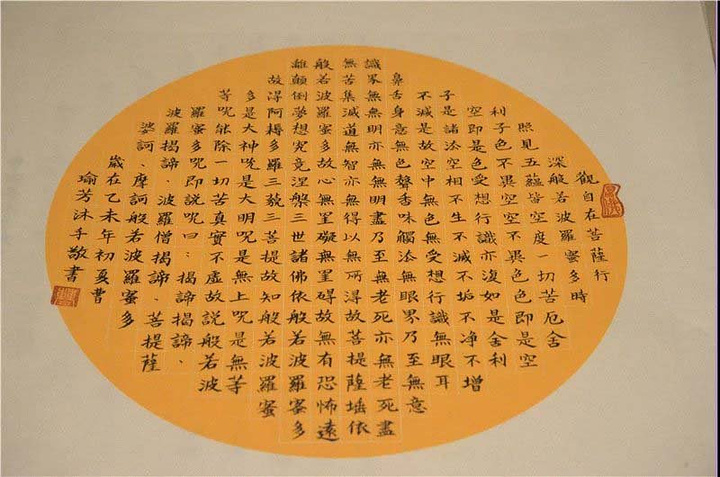 觀自在菩薩行
深般若波羅蜜多時
照見五蘊皆空度一切苦厄舍
利子色不異空空不異色色即是空
空即是色受想行識亦復如是舍利
子是諸法空相不生不滅不垢不净不增
不滅是故空中無色無受想行識無眼耳
鼻舌身意無色聲香味觸法無眼界乃至無意
識界無無明亦無無明盡乃至無老死亦無老死盡
無苦集滅道無智亦無得以無所得故菩提薩埵依
般若波羅蜜多故心無罣礙無罣碍故無有恐怖遠
離顛倒夢想究竟涅槃三世諸佛依般若波羅蜜多
故得阿耨多羅三藐三菩提故知般若波羅蜜
多是大神呪是大明呪是無上呪是無等
等呪能除一切苦真實不虛故説般若波
羅蜜多呪即説呪曰：揭諦揭諦、
波羅揭諦、波羅僧揭諦、菩提薩
婆訶、摩訶般若波羅蜜多
歲在乙未年初夏曹
瑜芳沐手敬書